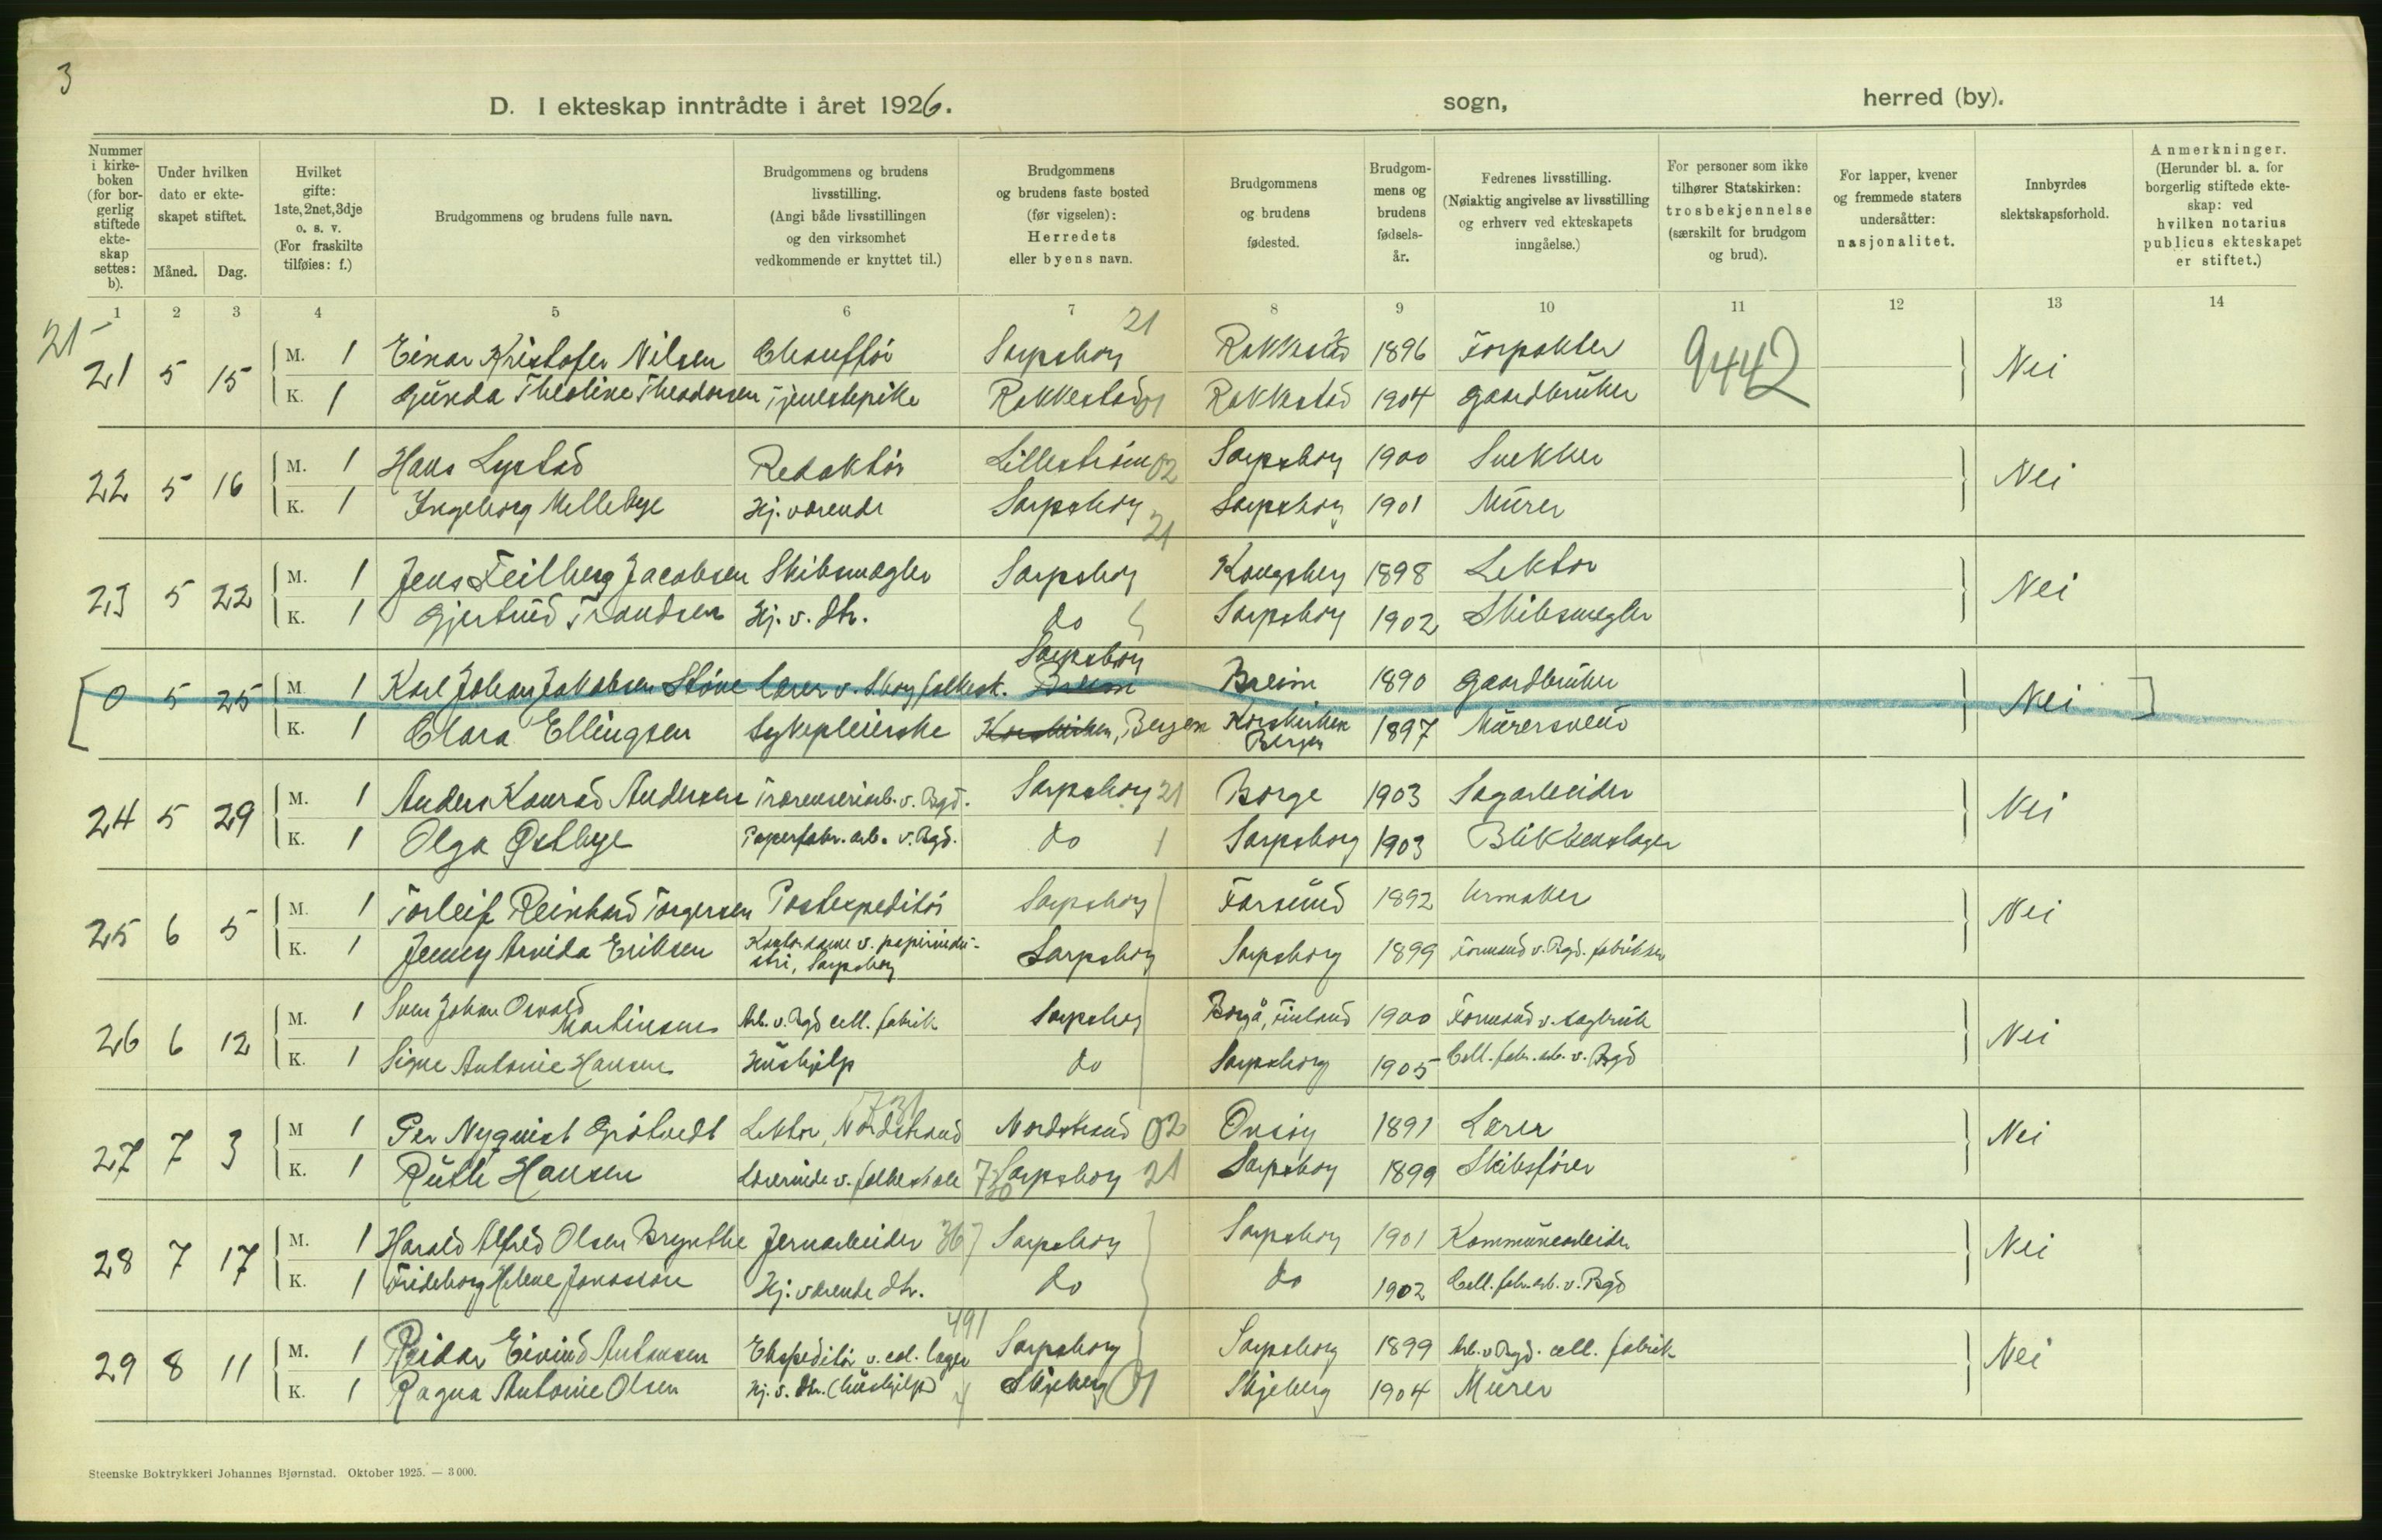 3
D. I ekteskap inntrådte i året 1926.
sogn,
herred (by).
Nummer i kirkeboken (for borgerlig stiftede ekteskap settes: b).
Under hvilken dato er ekteskapet stiftet.
Måned.
Dag.
Hvilket gifte: 1ste, 2net, 3dje o. s. v. (For fraskilte tilføies: f.)
Brudgommens og brudens fulle navn.
Brudgommens og brudens livsstilling. (Angi både livsstillingen og den virksomhet vedkommende er knyttet til.)
Brudgommens og brudens faste bosted (før vigselen): Herredets eller byens navn.
Brudgommens og brudens fødested.
Brudgommens og brudens fødselsår.
Fedrenes livsstilling. (Nøiaktig angivelse av livsstilling og erhverv ved ekteskapets inngåelse.)
For personer som ikke tilhører Statskirken: trosbekjennelse (særskilt for brudgom og brud).
For lapper, kvener og fremmede staters undersåtter: nasjonalitet.
Innbyrdes slektskapsforhold.
Anmerkninger. (Herunder bl. a. for borgerlig stiftede ekteskap: ved hvilken notarius publicus ekteskapet er stiftet.)
1 2 3 4 5 6 7 8 9 10 11 12 13 14
21
21 5 15 M. 1 Einar Kristofer Nilsen Chauffør Sarpsborg 21 Rakkestad 1896 Forpakter 9442 Nei
K. 1 Gunda Theoline Theodorsen Tjenestepike Rakkestad 01 Rakkestad 1904 Gaardbruker
22 5 16 M. 1 Hans Lystad Redaktør Lillestrøm 02 Sarpsborg 1900 Snekker Nei
K. 1 Ingeborg Mellebye Hj. værende Sarpsborg 21 Sarpsborg 1901 Murer
23 5 22 M. 1 Jens Feilberg Jacobsen Skibsmægler Sarpsborg Kongsberg 1898 Lektor Nei
K. 1 Gjertrud Trandsen Hj. v. dtr. do Sarpsborg 1902 Skibsmegler
Sarpsborg
[0 5 25 M. 1 Karl Johan Jakobsen Støve Lærer v. S.borg folkesk. Breim Breim 1890 Gaardbruker Nei]
K. 1 Clara Ellingsen Sykepleierske Korskirken, Bergen Korskirken Bergen 1897 Murersvend
24 5 29 M. 1 Anders Konrad Andersen Træsliperiarb. v. Bgd. Sarpsborg 21 Borge 1903 Sagarbeider Nei
K. 1 Olga Østbye Papirfabr. arb. v. Bgd. do 1 Sarpsborg 1903 Blikkenslager
25 6 5 M. 1 Torleif Reinhard Torgersen Postexpeditør Sarpsborg Farsund 1892 Urmaker Nei
K. 1 Jenny Arvida Eriksen Kontordame v. papirindustri, Sarpsborg Sarpsborg Sarpsborg 1899 Formand v. Bgd. fabrikker
26 6 12 M. 1 Sven Johan Osvald Martinsen Arb. v. Bgd cell. fabrik Sarpsborg Borgå, Finland 1900 Formand v. sagbruk Nei
K. 1 Signe Antonie Hansen Hushjelp do Sarpsborg 1905 Cell. fabr. arb. v. Bgd
731
27 7 3 M 1 Per Nyquist Grøtvedt Lektor, Nordstrand Nordstrand 02 Onsøy 1891 Lærer Nei
K. 1 Ruth Hansen Lærerinde v. folkeskole 730 Sarpsborg 21 Sarpsborg 1899 Skibsfører
28 7 17 M. 1 Harald Alfred Olsen Brynthe Jernarbeider 367 Sarpsborg Sarpsborg 1901 Kommunearbeider Nei
K. 1 Frideborg Helene Jonassen Hj. værende dtr. do do 1902 Cell. fabr. arb. v. Bgd
491
29 8 11 M. 1 Reidar Eivind Antonsen Ekspeditør v. col. lager Sarpsborg Sarpsborg 1899 Arb. v. Bgd. cell. fabrik Nei
K. 1 Ragna Antonie Olsen Hj. v. dtr. (hushjelp) Skjeberg 01 Skjeberg 1904 Murer
Steenske Boktrykkeri Johannes Bjørnstad. Oktober 1925. — 3 000.